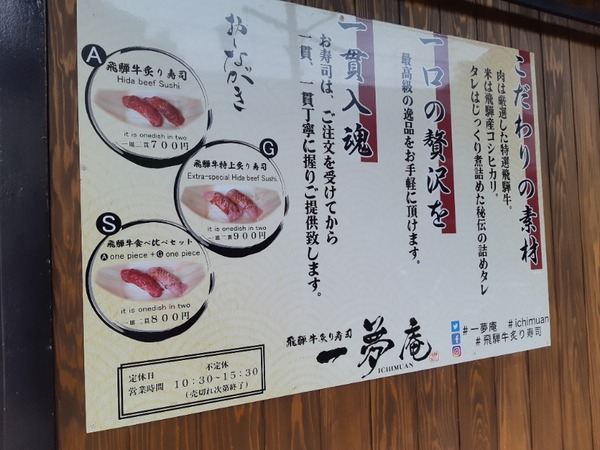 こだわりの素材
肉は厳選した特選飛騨牛。
米は飛騨産コシヒカリ。
タレはじっくり煮詰めた秘伝の詰めタレ
一口の贅沢を
最高級の逸品をお手軽に頂けます。
一貫入魂
お寿司は、ご注文を受けてから
一貫、一貫丁寧に握りご提供致します。
おしながき
A
飛騨牛炙り寿司
Hida beef Sushi
it is onedish in two
一皿二貫700円
G
飛騨牛特上炙り寿司
Extra-special Hida beef Sushi
it is onedish in two
一皿二貫900円
S
飛騨牛食べ比べセット
A one piece + G one piece
it is onedish in two
一皿二貫800円
飛騨牛炙り寿司
一夢庵
ICHIMUAN
#一夢庵 #ichimuan
#飛騨牛炙り寿司
定休日 不定休
営業時間 10:30~15:30
(売切れ次第終了)